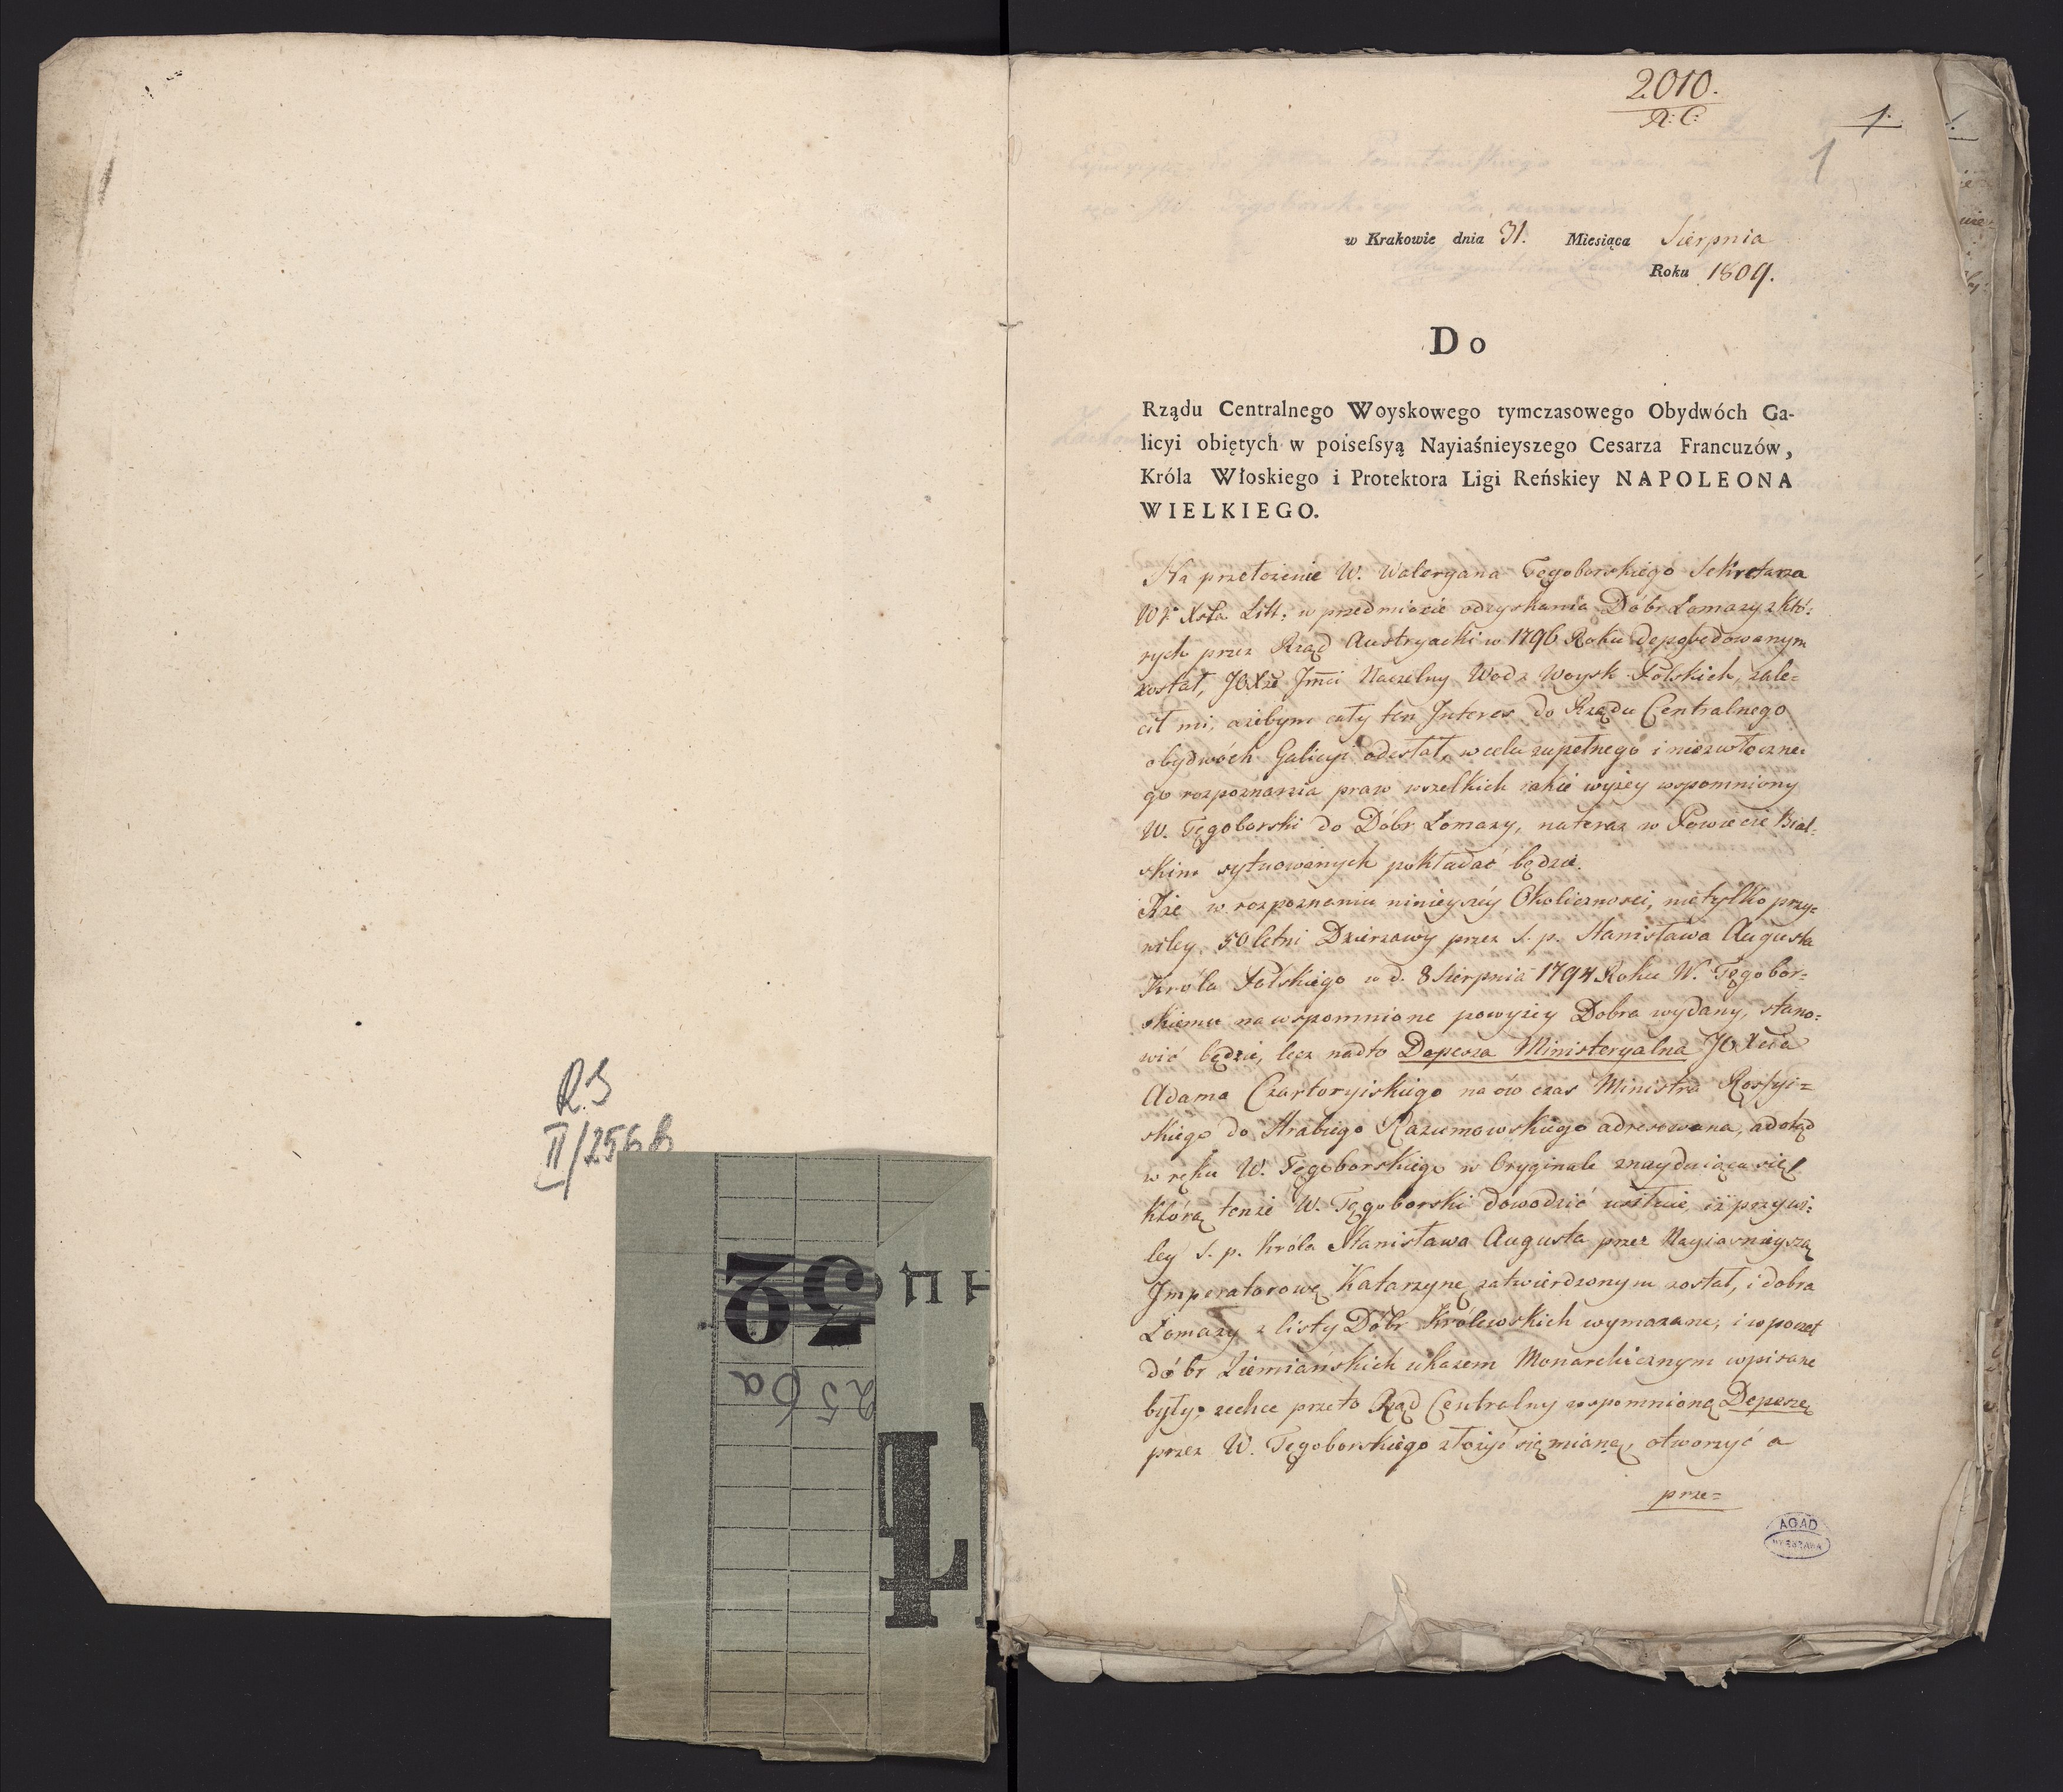 R.S
II/256b
52
256a
2010.
R: C:
1.
1
w Krakowie dnia 31. Miesiąca Sierpnia
Roku 1809.
Do
Rządu Centralnego Woyskowego tymczasowego Obydwóch Ga-
licyi obiętych w poisefsyą Nayiaśnieyszego Cesarza Francuzów,
Króla Włoskiego i Protektora Ligi Reńskiey NAPOLEONA
WIELKIEGO.
Na przełożenie W. Waleryana Tęgoborskiego Sekretarza
W? Xsta Litt: w przedmiocie odzyskania Dóbr Łomazy z któ:
rych przez Rząd Austryacki w 1796 Roku depossedowanym
został, JOXże Jmci Naczelny Wódz Woysk Polskich, zale=
cił mi, ażebym cały ten Interes do Rządu Centralnego
obydwóch Galicyi odesłał, w celu zupełnego i niezwłoczne=
go rozpoznania praw wszelkich iakie wyżey wspomniony
W. Tęgoborski do Dóbr Łomazy, nateraz w Powiecie Bial=
skim sytuowanych pokładać będzie.
Że w rozpoznaniu ninieyszéy Okoliczności, nietylko przy=
wiley 50letni Dzierzawy przez ś. p. Stanisława Augusta
Króla Polskiego w d. 8 Sierpnia 1794 Roku W. Tęgobor=
skiemu na wspomnione powyżey Dobra wydany, stano=
wić będzie, lecz nadto Depesza Ministeryalna JOXcia
Adama Czartoryiskiego na ów czas Ministra Rossyi=
skiego do Hrabiego Razumowskiego adresowana, a dotąd
w ręku W. Tęgoborskiego w Oryginale znayduiąca się,
którą tenże W. Tęgoborski dowodzić usiłuie, iż przywi:
ley ś. p. Króla Stanisława Augusta przez Nayiaśnieyszą
Imperatorowę Katarzynę zatwierdzonym został, i dobra
Łomazy z listy Dóbr Królewskich wymazane, i w poczet
dóbr Ziemiańskich ukazem Monarchicznym wpisane
były; zechce przeto Rząd Centralny wspomnioną Depeszę
przez W. Tęgoborskiego złożyć się mianą, otworzyć a
prze=
AGAD
WARSZAWA